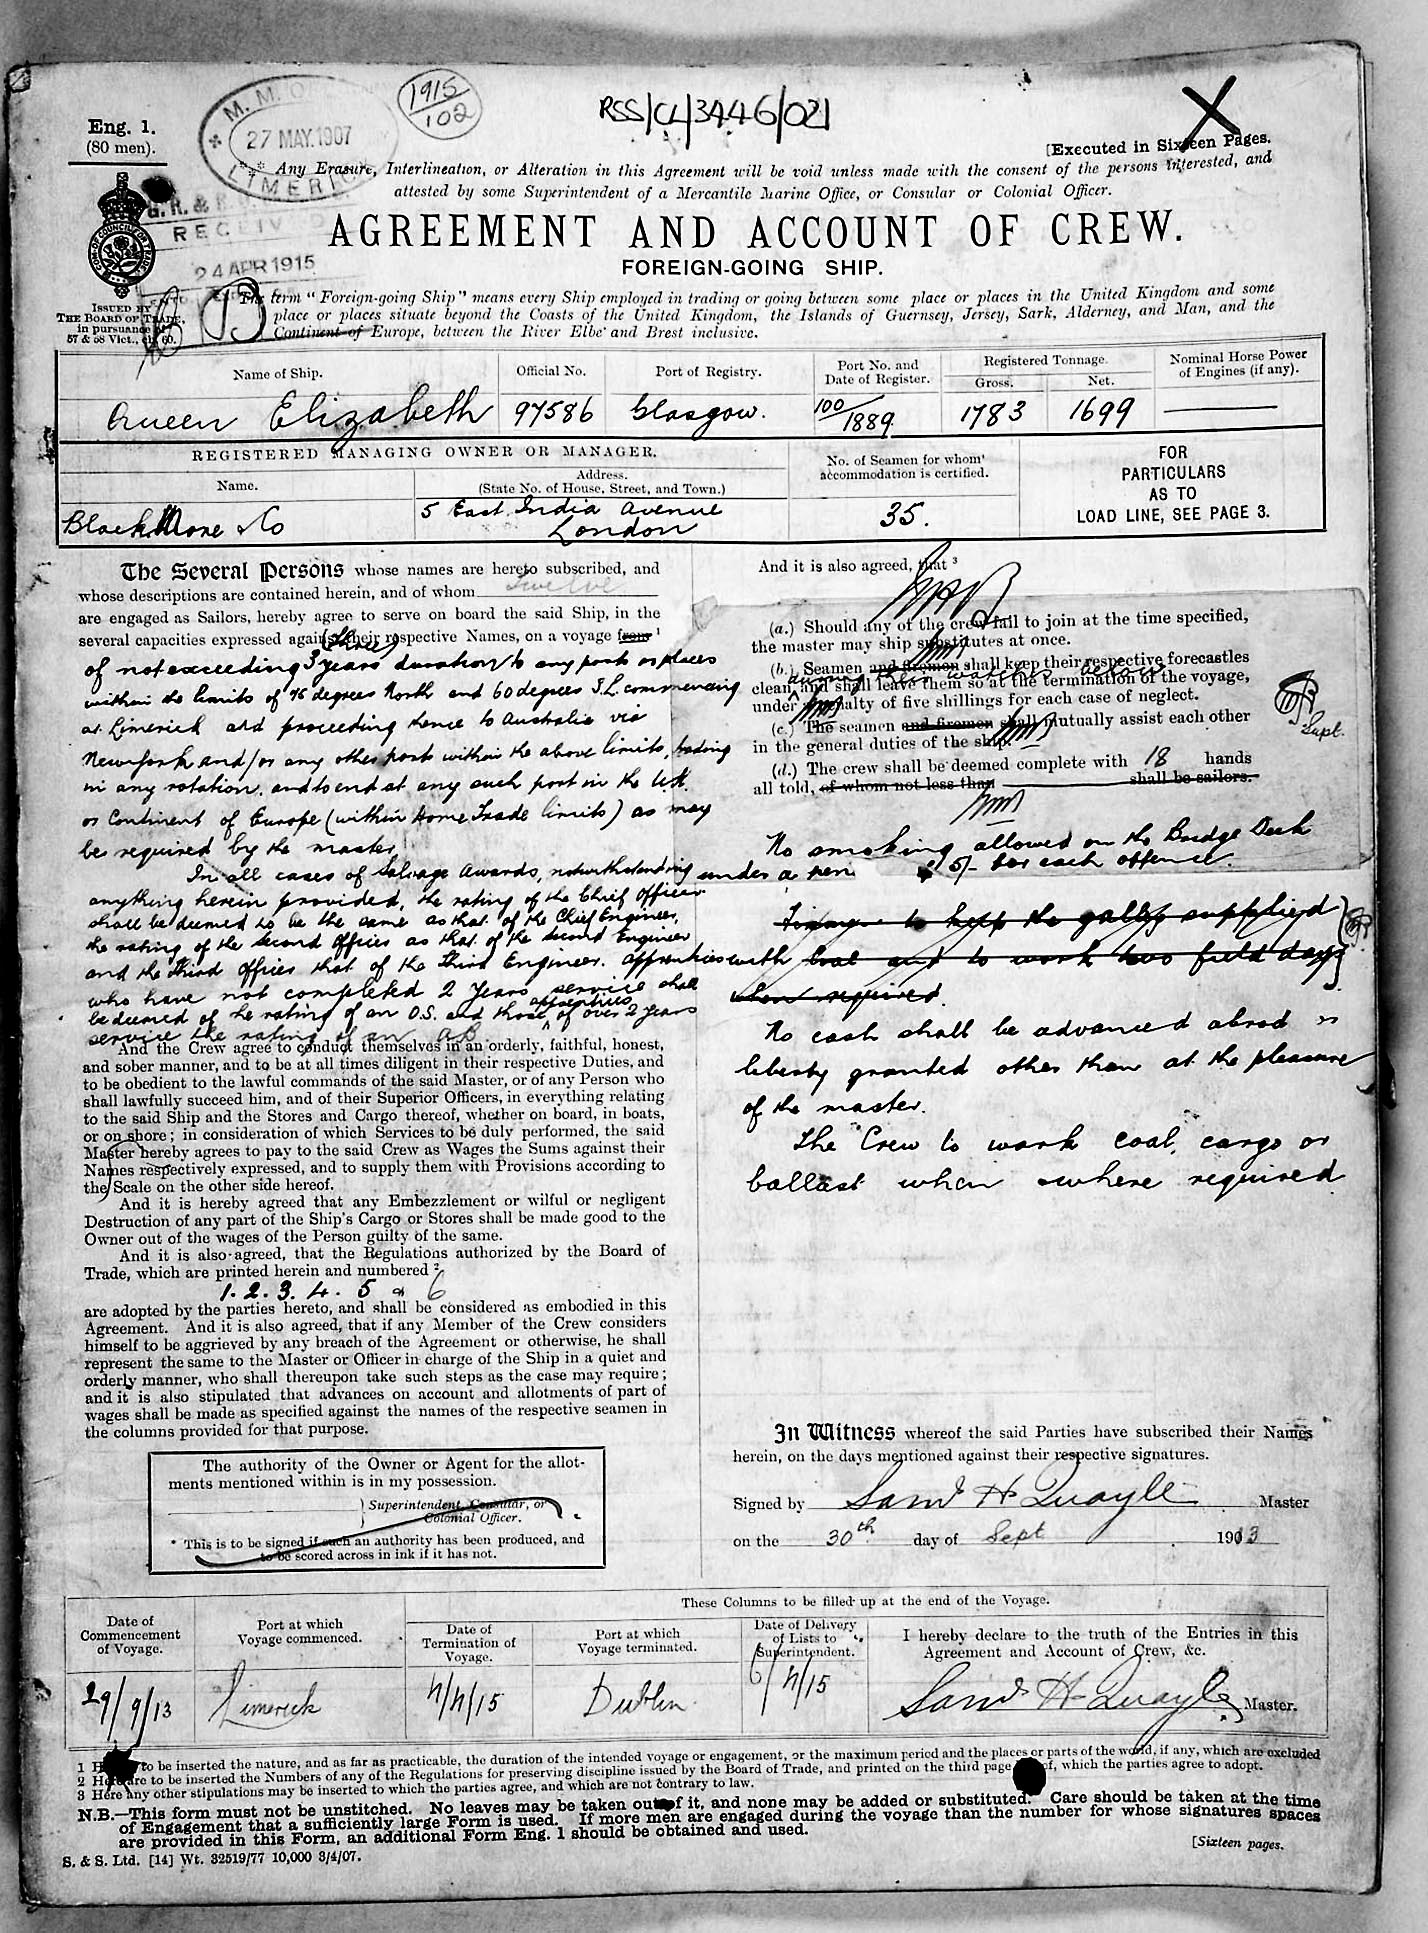 Eng. 1.
(80 men).
M. M. O.
27 MAY. 1907
LIMERI
1915
102
RSS/CL/3446/021
X
[Executed in Sixteen Pages.
Any Erasure, Interlineation, or Alteration in this Agreement will be void unless made with the consent of the persons interested, and
attested by some Superintendent of a Mercantile Marine Office, or Consular or Colonial Officer.
G. R. &
RECEIV D
24 APR 1915
AGREEMENT AND ACCOUNT OF CREW.
FOREIGN-GOING SHIP.
ISSUED BY
THE BOARD OF TRADE,
in pursuance of
57 & 58 Vict., ch. 60.
B
The term "Foreign-going Ship" means every Ship employed in trading or going between some place or places in the United Kingdom and some
place or places situate beyond the Coasts of the United Kingdom, the Islands of Guernsey, Jersey, Sark, Alderney, and Man, and the
Continent of Europe, between the River Elbe and Brest inclusive.
Name of Ship.
Official No.
Port of Registry.
Port No. and
Date of Register.
Registered Tonnage.
Gross.
Net.
Nominal Horse Power
of Engines (if any).
Queen Elizabeth
97586
Glasgow.
100/1889
1783
1699
REGISTERED MANAGING OWNER OR MANAGER.
Name.
Address.
(State No. of House, Street, and Town.)
No. of Seamen for whom
accommodation is certified.
FOR
PARTICULARS
AS TO
LOAD LINE, SEE PAGE 3.
Black Moore & Co
5 East India Avenue
London
35.
The Several Persons whose names are hereto subscribed, and
whose descriptions are contained herein, and of whom twelve
are engaged as Sailors, hereby agree to serve on board the said Ship, in the
several capacities expressed against their respective Names, on a voyage from 1
(three)
of not exceeding 3 years duration to any ports or places
within the limits of 75 degrees North and 60 degrees S.L. commencing
at Limerick and proceeding thence to Australia via
New York and/or any other ports within the above limits, trading
in any rotation, and to end at any such port in the U.K.
or Continent of Europe (within Home Trade limits) as may
be required by the master.
In all cases of Salvage Awards, notwithstanding
anything herein provided, the rating of the Chief Officer
shall be deemed to be the same as that of the Chief Engineer,
the rating of the Second Officer as that of the Second Engineer
and the third Officer that of the third Engineer. Apprentices
who have not completed 2 years service shall
be deemed of the rating of an O.S. and those apprentices of over 2 years
service the rating of an A.B.
And the Crew agree to conduct themselves in an orderly, faithful, honest,
and sober manner, and to be at all times diligent in their respective Duties, and
to be obedient to the lawful commands of the said Master, or of any Person who
shall lawfully succeed him, and of their Superior Officers, in everything relating
to the said Ship and the Stores and Cargo thereof, whether on board, in boats,
or on shore; in consideration of which Services to be duly performed, the said
Master hereby agrees to pay to the said Crew as Wages the Sums against their
Names respectively expressed, and to supply them with Provisions according to
the Scale on the other side hereof.
And it is hereby agreed that any Embezzlement or wilful or negligent
Destruction of any part of the Ship's Cargo or Stores shall be made good to the
Owner out of the wages of the Person guilty of the same.
And it is also agreed, that the Regulations authorized by the Board of
Trade, which are printed herein and numbered 2
1. 2. 3. 4. 5 & 6
are adopted by the parties hereto, and shall be considered as embodied in this
Agreement. And it is also agreed, that if any Member of the Crew considers
himself to be aggrieved by any breach of the Agreement or otherwise, he shall
represent the same to the Master or Officer in charge of the Ship in a quiet and
orderly manner, who shall thereupon take such steps as the case may require;
and it is also stipulated that advances on account and allotments of part of
wages shall be made as specified against the names of the respective seamen in
the columns provided for that purpose.
The authority of the Owner or Agent for the allot-
ments mentioned within is in my possession.
Superintendent, Consular, or
Colonial Officer.
* This is to be signed if such an authority has been produced, and
to be scored across in ink if it has not.
And it is also agreed, that 3
(a.) Should any of the crew fail to join at the time specified,
the master may ship substitutes at once.
(b.) Seamen and firemen shall keep their respective forecastles
during their watches below
clean, and shall leave them so at the termination of the voyage,
under penalty of five shillings for each case of neglect.
(c.) The seamen and firemen shall mutually assist each other
in the general duties of the ship.
(d.) The crew shall be deemed complete with 18 hands
all told, of whom not less than shall be sailors.
Supt.
No smoking allowed on the Bridge Deck
under a pen 5/- for each offence.
to keep the galley supplied
with coal and to work two field days
when required.
No cash shall be advanced abroad or
liberty granted other than at the pleasure
of the master.
The Crew to work coal, cargo or
ballast when & where required
In Witness whereof the said Parties have subscribed their Names
herein, on the days mentioned against their respective signatures.
Signed by Saml H Quayle Master
on the 30th day of Sept 1913
These Columns to be filled up at the end of the Voyage.
Date of
Commencement
of Voyage.
Port at which
Voyage commenced.
Date of
Termination of
Voyage.
Port at which
Voyage terminated.
Date of Delivery
of Lists to
Superintendent.
I hereby declare to the truth of the Entries in this
Agreement and Account of Crew, &c.
29/9/13
Limerick
4/4/15
Dublin
6/4/15
Saml H Quayle Master.
1 H to be inserted the nature, and as far as practicable, the duration of the intended voyage or engagement, or the maximum period and the places or parts of the world, if any, which are excluded
2 Here are to be inserted the Numbers of any of the Regulations for preserving discipline issued by the Board of Trade, and printed on the third page of, which the parties agree to adopt.
3 Here any other stipulations may be inserted to which the parties agree, and which are not contrary to law.
N.B.—This form must not be unstitched. No leaves may be taken out of it, and none may be added or substituted. Care should be taken at the time
of Engagement that a sufficiently large Form is used. If more men are engaged during the voyage than the number for whose signatures spaces
are provided in this Form, an additional Form Eng. 1 should be obtained and used.
[Sixteen pages.
S. & S. Ltd. [14] Wt. 32519/77 10,000 3/4/07.